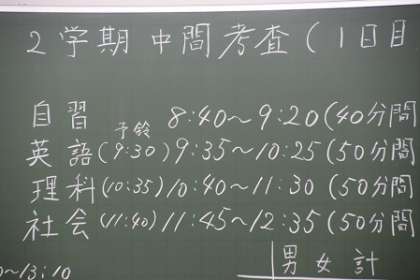 2学期 中間考査(1日目
自習 8:40～9:20(40分間
予鈴
英語(9:30)9:35～10:25(50分間
理科(10:35)10:40～11:30(50分間
社会(11:40)11:45～12:35(50分間
男女計
～13:10